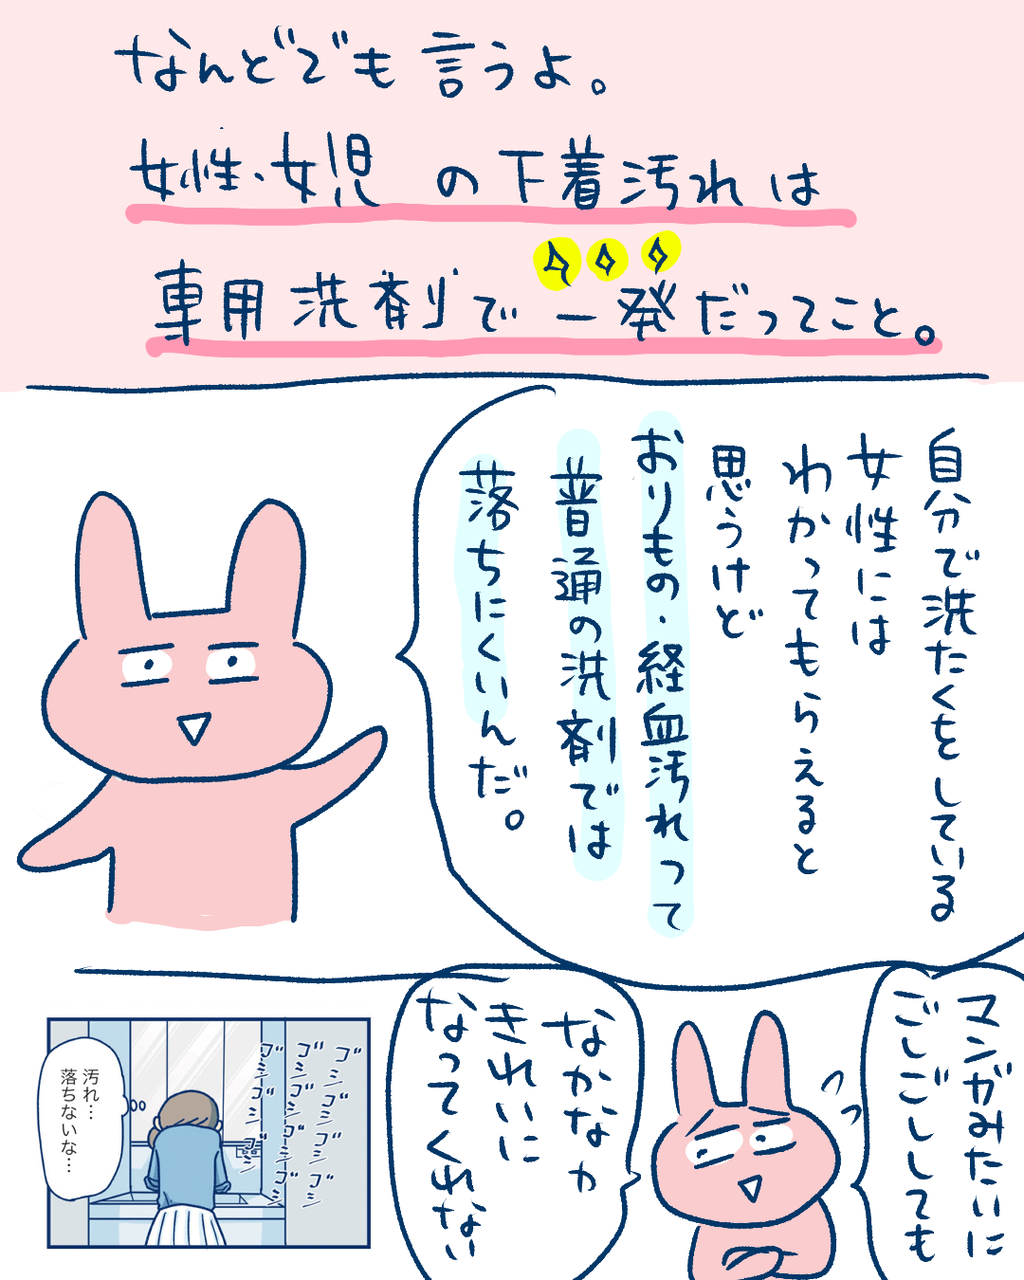 なんどでも言うよ。
女性・女児の下着汚れは
専用洗剤で一発だってこと。
自分で洗たくをしている
女性には
わかってもらえると
思うけど
おりもの・経血汚れって
普通の洗剤では
落ちにくいんだ。
マンガみたいに
ごしごししても
なかなか
きれいに
なってくれない
ゴシゴシゴシゴシ
ゴシゴシゴシゴシ
ゴシゴシゴシ
汚れ…
落ちないな…